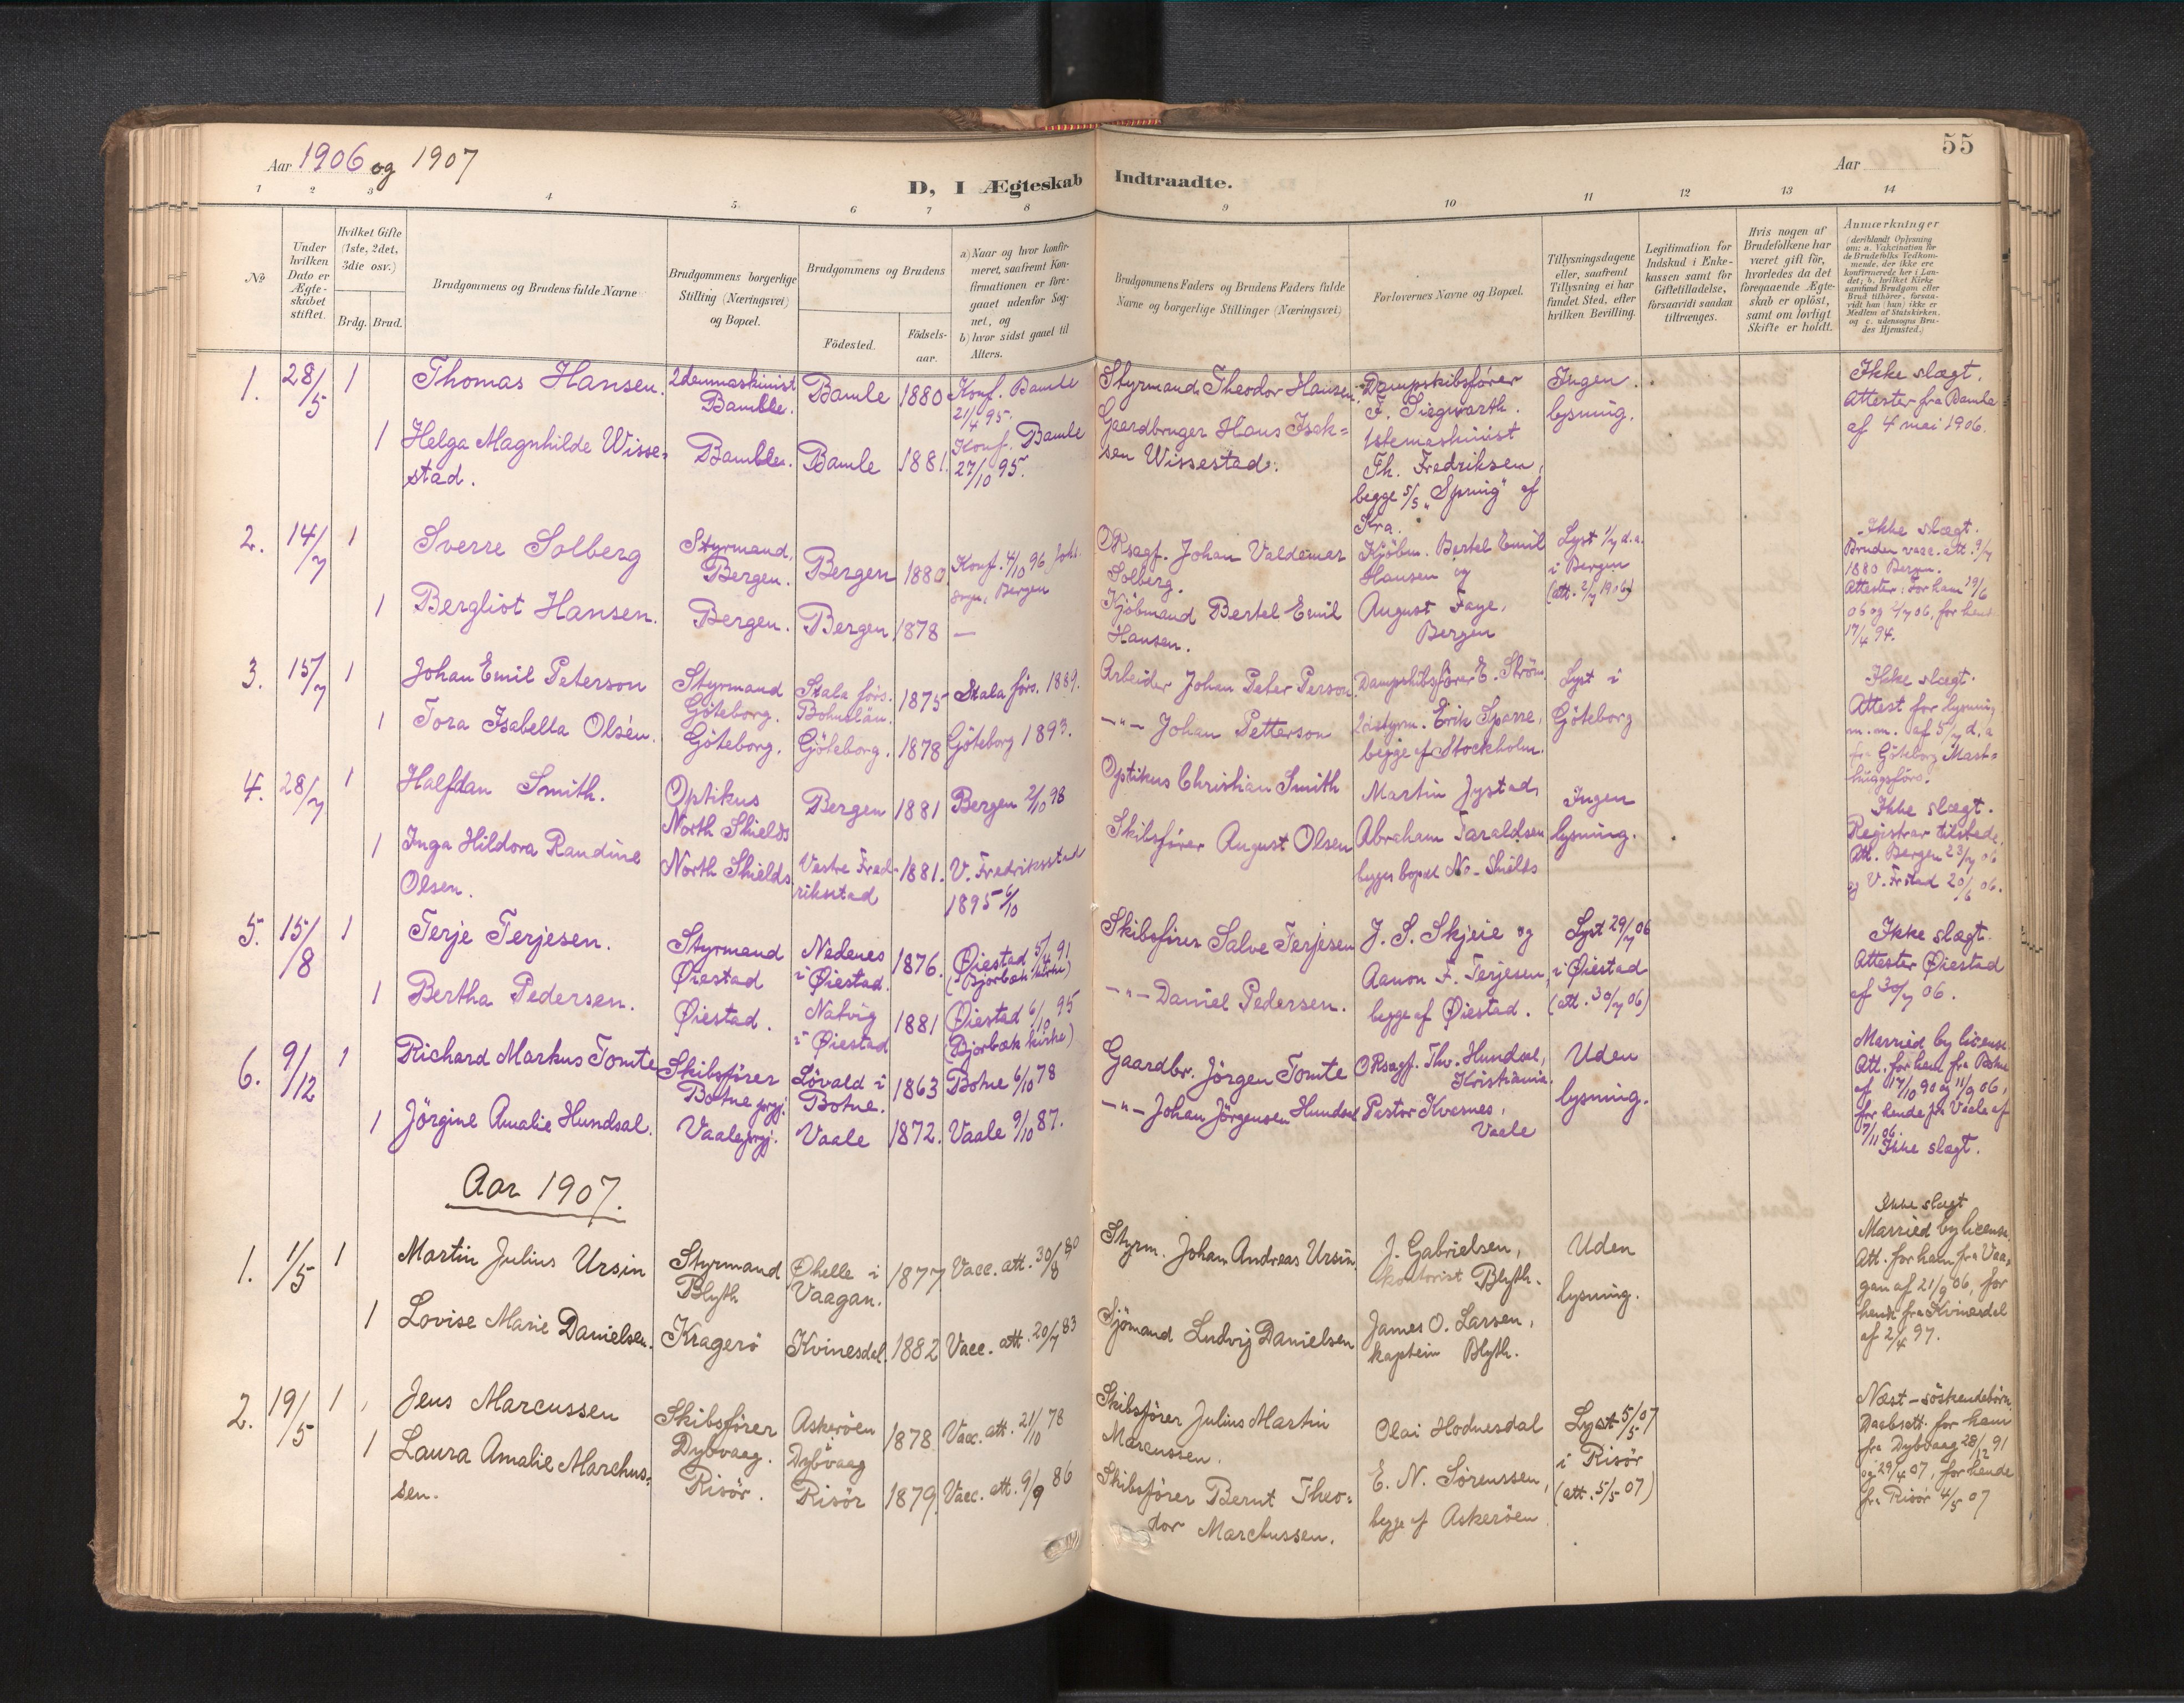 Aar 1906 og 1907
D, I Ægteskab Indtraadte.
Aar
55
1 2 3 4 5 6 7 8 9 10 11 12 13 14
No
Under hvilken Dato er Ægteskabet stiftet.
Hvilket Gifte (1ste, 2det, 3die osv.)
Brdg. Brud.
Brudgommens og Brudens fulde Navne
Brudgommens borgerlige Stilling (Næringsvei) og Bopæl.
Brudgommens og Brudens
Födested.
Födsels-aar.
a) Naar og hvor konfirmeret, saafremt Konfirmationen er foregaaet udenfor Sognet, og
b) hvor sidst gaaet til Alters.
Brudgommens Faders og Brudens Faders fulde Navne og borgerlige Stillinger (Næringsvei)
Forlovernes Navne og Bopæl.
Tillysningsdagene eller, saafremt Tillysning ei har fundet Sted, efter hvilken Bevilling.
Legitimation for Indskud i Enkekassen samt for Giftetilladelse, forsaavidt saadan tiltrænges.
Hvis nogen af Brudefolkene har været gift för, hvorledes da det foregaaende Ægteskab er oplöst, samt om lovligt Skifte er holdt.
Anmærkninger
(deriblandt Oplysning om: a. Vakcination for de Brudefolks Vedkommende, der ikke ere konfirmerede her i Landet; b. hvilket Kirkesamfund Brudgom eller Brud tilhører, forsaavidt han (hun) ikke er Medlem af Statskirken, og c. udensogns Brudes Hjemsted.)
1. 28/5 1 Thomas Hansen. 2denmaskinist Bamble. Bamle 1880 Konf. Bamle 21/4 95.
Styrmand Theodor Hansen.
1 Helga Magnhilde Wissestad. Bamble. Bamle 1881. Konf. Bamle 27/10 95.
Gaardbruger Hans Isaksen Wissestad.
Dampskibsfører F. Siegwarth. 1stemaskinist Th. Fredriksen, begge S/S "Spring" af Kra.
Ingen lysning.
Ikke slægt.
Attester fra Bamle
af 4 mai 1906.
2. 14/7 1 Sverre Solberg Styrmand, Bergen. Bergen 1880 Konf. 4/10 96 Joh. sogn, Bergen
ORsagf. Johan Valdemar Solberg.
1 Bergliot Hansen. Bergen. Bergen. 1878 —
Kjöbmand Bertel Emil Hansen.
Kjöbm. Bertel Emil Hansen og August Faye, Bergen
Lyst 1/7 d.a. i Bergen (att. 2/7 1906)
Ikke slægt.
Bruden vacc. att. 9/7
1880 Bergen.
Attester: For ham 29/6
06 og 2/7 06, for hende
17/4 94.
3. 15/7 1 Johan Emil Peterson Styrmand Göteborg. Stala förs. Bohuslän. 1875 Stala förs. 1889.
Arbeider Johan Peter Person.
1 Tora Isabella Olsén. Göteborg. Göteborg. 1878 Göteborg 1893.
—"— Johan Petterson
Dampskibsfører E. Ström, 2destyrm. Erik Sparre, begge af Stockholm.
Lyst i Göteborg
Ikke slægt.
Attest for lysning
m.m. af 5/7 d.a
fra Göteborg Masthuggsförs.
4. 28/7 1 Halfdan Smith. Optikus North Shields Bergen 1881 Bergen 2/10 98
Optikus Christian Smith
1 Inga Hildora Randine Olsen. North Shields Vestre Fredriksstad 1881. V. Fredriksstad 1895 6/10
Skibsfører August Olsen
Martin Jystad, Abraham Taraldsen begges bopæl No. Shields
Ingen lysning.
Ikke slægt.
Registrar tilstede.
Att. Bergen 23/7 06
og V. Frstad 20/6 06.
5. 15/8 1 Terje Terjesen. Styrmand Øiestad Nedenes i Øiestad. 1876. Øiestad 5/4 91 (Bjorbæk kirke)
Skibsfører Salve Terjesen
1 Bertha Pedersen. Øiestad. Natvig i Øiestad 1881 Øiestad 6/10 95 (Bjorbæk kirke)
—"— Daniel Pedersen.
J. S. Skjeie og Aanon F. Terjesen, begge af Øiestad.
Lyst 29/7 06 i Øiestad (att. 30/7 06)
Ikke slægt.
Attester Øiestad
af 30/7 06.
6. 9/12 1 Richard Markus Tomte Skibsfører Botne prgj. Lövald i Botne. 1863 Botne 6/10 78
Gaardbr. Jörgen Tomte
1 Jörgine Amalie Hundsal. Vaale prgj. Vaale 1872. Vaale 9/10 87.
—"— Johan Jörgensen Hundsal
ORsagf. Thv. Hundsal, Kristiania. Pastor Kvasnes, Vaale
Uden lysning.
Married by license
Att. for ham fra Botne
af 17/10 90 og 11/9 06,
for hende fra Vaale af
7/11 06.
Ikke slægt.
Aar 1907.
1. 1/5 1 Martin Julius Ursin Styrmand Blyth Øhelle i Vaagan. 1877 Vacc. att. 30/8 80
Styrm. Johan Andreas Ursin.
1 Lovise Marie Danielsen. Kragerö Kvinesdal. 1882 Vacc. att. 20/7 83
Sjömand Ludvig Danielsen
J. Gabrielsen, kontorist Blyth. James O. Larsen, kaptein Blyth.
Uden lysning.
Ikke slægt
Married by license.
Att. for ham fra Vaagan af 21/9 06, for
hende fra Kvinesdal
af 2/4 97.
2. 19/5 1 Jens Marcussen Skibsfører Dybvaag. Askeröen Dybvaag 1878. Vacc. att. 21/10 78
Skibsfører Julius Martin Marcussen.
1 Laura Amalie Marchussen. Risör. Risör 1879. Vacc. att. 9/9 86
Skibsfører Bernt Theodor Marchussen.
Olai Hodnesdal E. N. Sörenssen, begge af Askeröen
Lyst 5/5 07 i Risör (att. 5/5 07)
Næst-söskendebörn
Daabsatt. for ham
fra Dybvaag 28/12 91
og 29/4 07, for hende
fra Risör 4/5 07